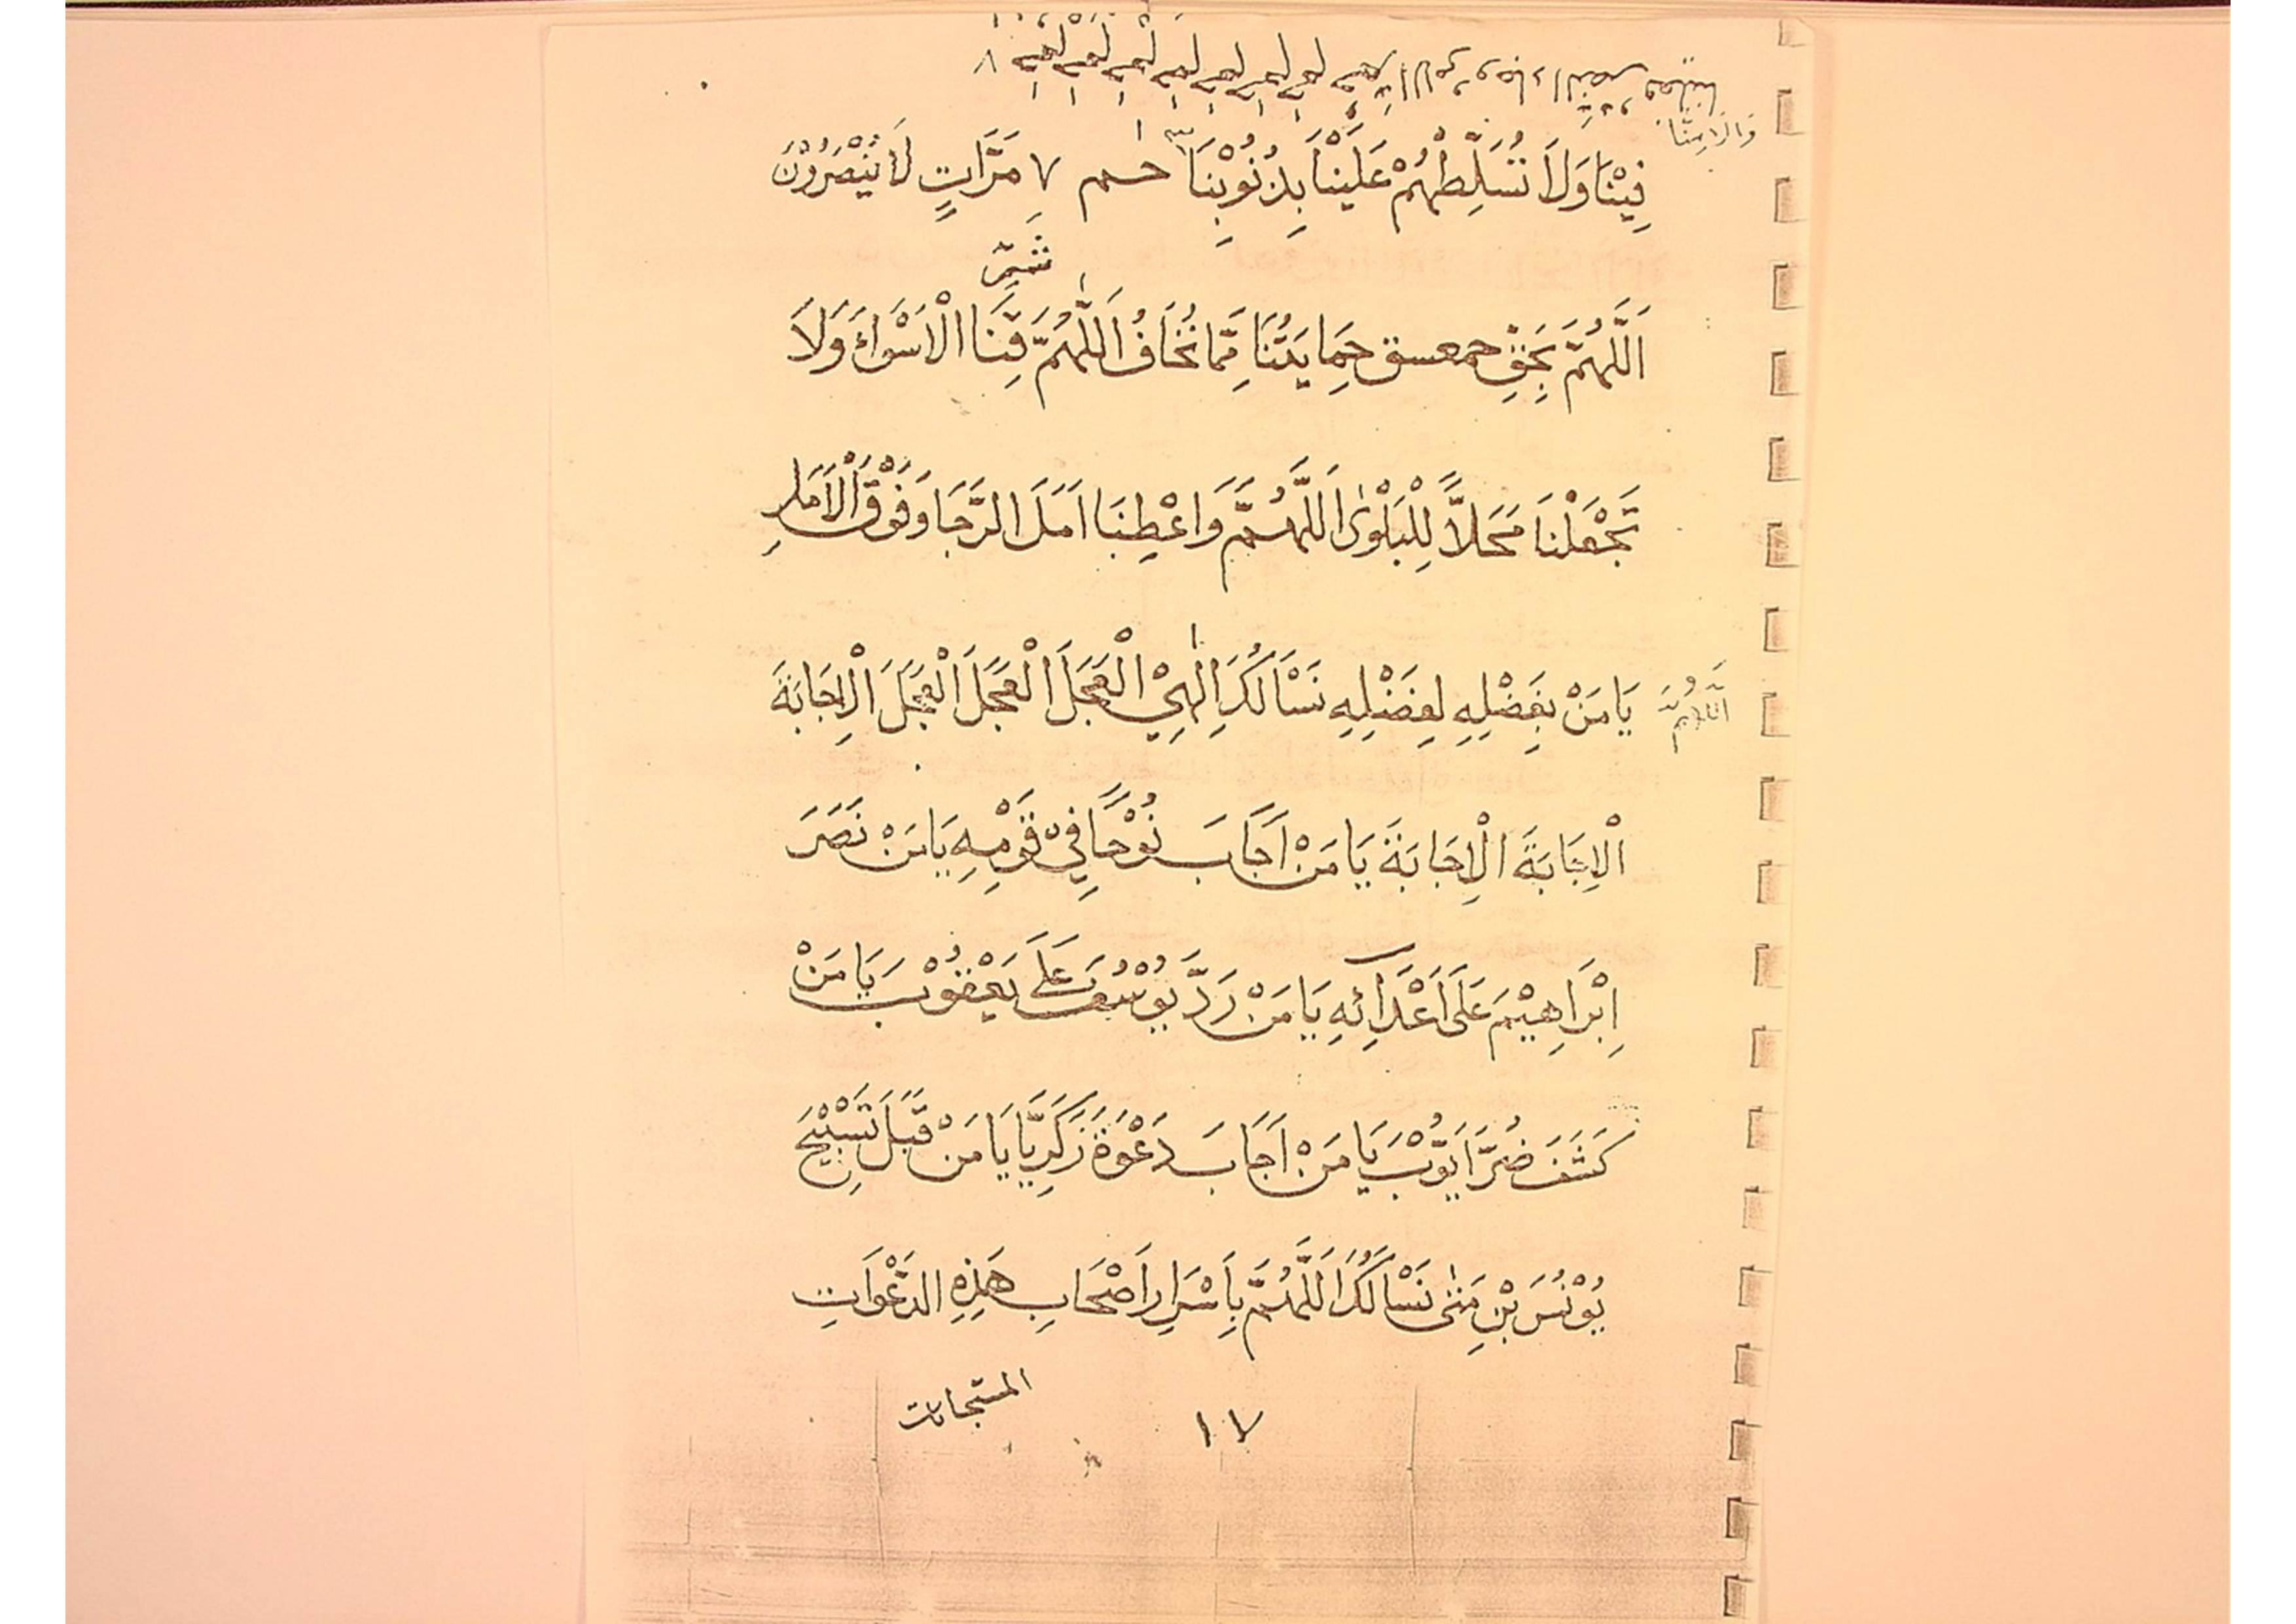 وَالَامِنَّا
فِيْنَا وَلَا تُسَلِّطْهُمْ عَلَيْنَا بِذُنُوْبِنَا ٣ حٰمم ٧ مَرَّاتٍ لَا يُنْصَرُوْنَ
شَرَّ
اَللّٰهُمَّ بِحَقِّ حمعسق حِمَايَتُنَا مِمَّا نُخَافُ اَللّٰهُمَّ قِنَا الْاَسْوَاءَ وَلَا
تَجْعَلْنَا مَحَلًّا لِلْبَلْوٰى اَللّٰهُمَّ وَاعْطِنَا اَمَلَ الرَّجَا وَفَوْقَ الْاَمَلِ
اَللّٰهُمَّ يَا مَنْ بِفَضْلِهِ لِفَضْلِهِ نَسْاَلُكَ اِلٰهِيْ الْعَجَلَ الْعَجَلَ الْعَجَلَ الْاِجَابَةَ
الْاِجَابَةَ الْاِجَابَةَ يَا مَنْ اَجَابَ نُوْحًا فِيْ قَوْمِهِ يَا مَنْ نَصَرَ
اِبْرَاهِيْمَ عَلَى اَعْدَآئِهِ يَا مَنْ رَدَّ يُوْسُفَ عَلَى يَعْقُوْبَ يَا مَنْ
كَشَفَ ضُرَّ اَيُّوْبَ يَا مَنْ اَجَابَ دَعْوَةَ زَكَرِيَّا يَا مَنْ قَبِلَ تَسْبِيْحَ
يُوْنُسَ بْنِ مَتّٰى نَسْاَلُكَ اَللّٰهُمَّ بِاَسْرَارِ اَصْحَابِ هَذِهِ الدَّعْوَاتِ
المستجابات
١٧